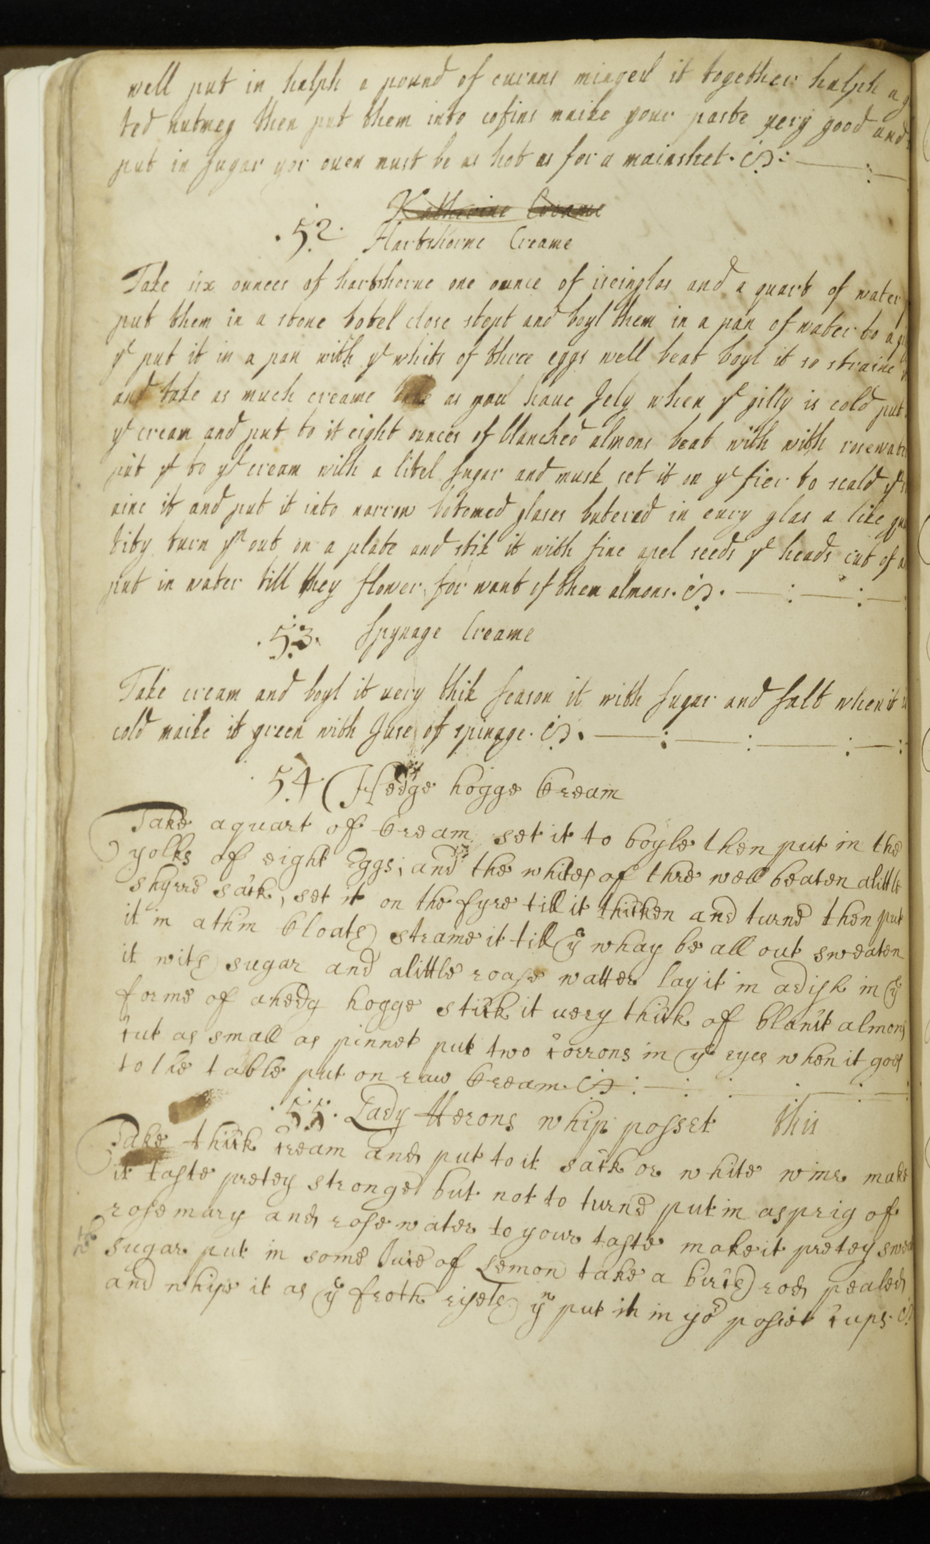 well put in halph a pound of curans minged it together halph a g
ted nutmeg then put them into cofins maike your paste very good and
put in sugar yor ouen must be as hot as for a mainshet.
Katherine Creame
.52. Hartshorne Creame
Take six ounces of hartshorne one ounce of iseinglas and a quart of water
put them in a stone botel close stopt and boyl them in a pan of water to a
yn put it in a pan with ye whits of three eggs well beat boyl it so straine
and take as much creame as you haue Jely when ye gilly is cold put
ye cream and put to it eight ounces of blanched almons beat with with rosewate
put yt to yr cream with a litel sugar and musk set it on ye fier to scald yn
aine it and put it into narrow botomed glases butered in eury glas a like qu
tity turn ym out on a plate and stik it with fine apel seeds ye heads cut of a
put in water till they flower, for want of them almons.
.53. Spynage Creame
Take cream and boyl it uery thik season it with sugar and salt when it
cold maike it green with Juse of spinage.
54 Hedge hogge Cream
Take a quart of Cream set it to boyle then put in the
yolks of eight Eggs, and the whites of thre well beaten a little
shyrre sack, set it on the fyre till it thicken and turne then put
it in a thin cloate straine it till ye whay be all out sweaten
it with sugar and a little roase watter lay it in a dish in ye
forme of a hedg hogge stick it uery thick of blanit almons
cut as small as pinnes put two corrons in ye eyes when it goes
to the table put on raw Cream
.55. Lady Herons whip posset this
Take thick cream and put to it sack or white wine make
it taste pretey stronge but not to turne put in a sprig of
rosemary and rose water to your taste make it pretey swe
sugar put in some Juice of Lemon take a birch rod pealed
and whipe it as ye froth riseth yn put it in yor posset cups